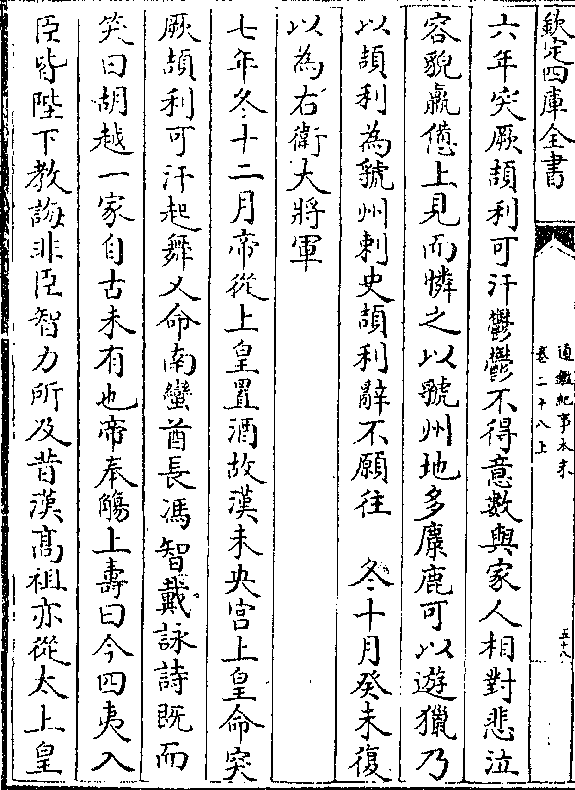 欽定四庫全書
通鑑紀事本末
卷二十八上
五十八
六年突厥頡利可汗鬱鬱不得意數與家人相對悲泣
容貌羸憊上見而憐之以虢州地多麋鹿可以遊獵乃
以頡利為虢州刺史頡利辭不願往　冬十月癸未復
以為右衛大將軍
七年冬十二月帝從上皇置酒故漢未央宮上皇命突
厥頡利可汗起舞又命南蠻酋長馮智戴詠詩既而
笑曰胡越一家自古未有也帝奉觴上壽曰今四夷入
臣皆陛下教誨非臣智力所及昔漢高祖亦從太上皇